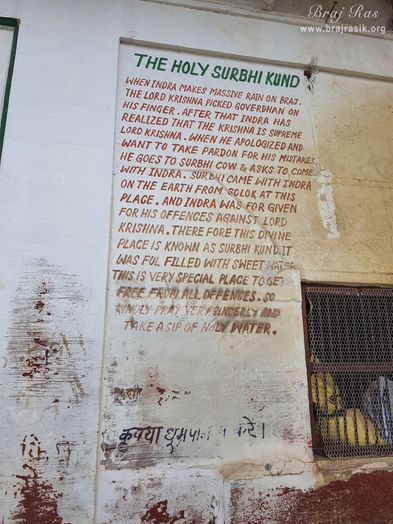 Braj Ras
www.brajrasik.org
THE HOLY SURBHI KUND
WHEN INDRA MAKES MASSIVE RAIN ON BRAJ.
THE LORD KRISHNA PICKED GOVERDHAN ON
HIS FINGER. AFTER THAT INDRA HAS
REALIZED THAT THE KRISHNA IS SUPREME
LORD KRISHNA. WHEN HE APOLOGIZED AND
WANT TO TAKE PARDON FOR HIS MISTAKES.
HE GOES TO SURBHI COW & ASKS TO COME
WITH INDRA. SURBHI CAME WITH INDRA
ON THE EARTH FROM GOLOK AT THIS
PLACE. AND INDRA WAS FOR GIVEN
FOR HIS OFFENCES AGAINST LORD
KRISHNA. THERE FORE THIS DIVINE
PLACE IS KNOWN AS SURBHI KUND. IT
WAS FUL FILLED WITH SWEET WATER
THIS IS VERY SPECIAL PLACE TO GET
FREE FROM ALL OFFENCES. SO
KINDLY PRAY VERY SINCERLY AND
TAKE A SIP OF HOLY WATER.
कृपया धूम्रपान न करें।